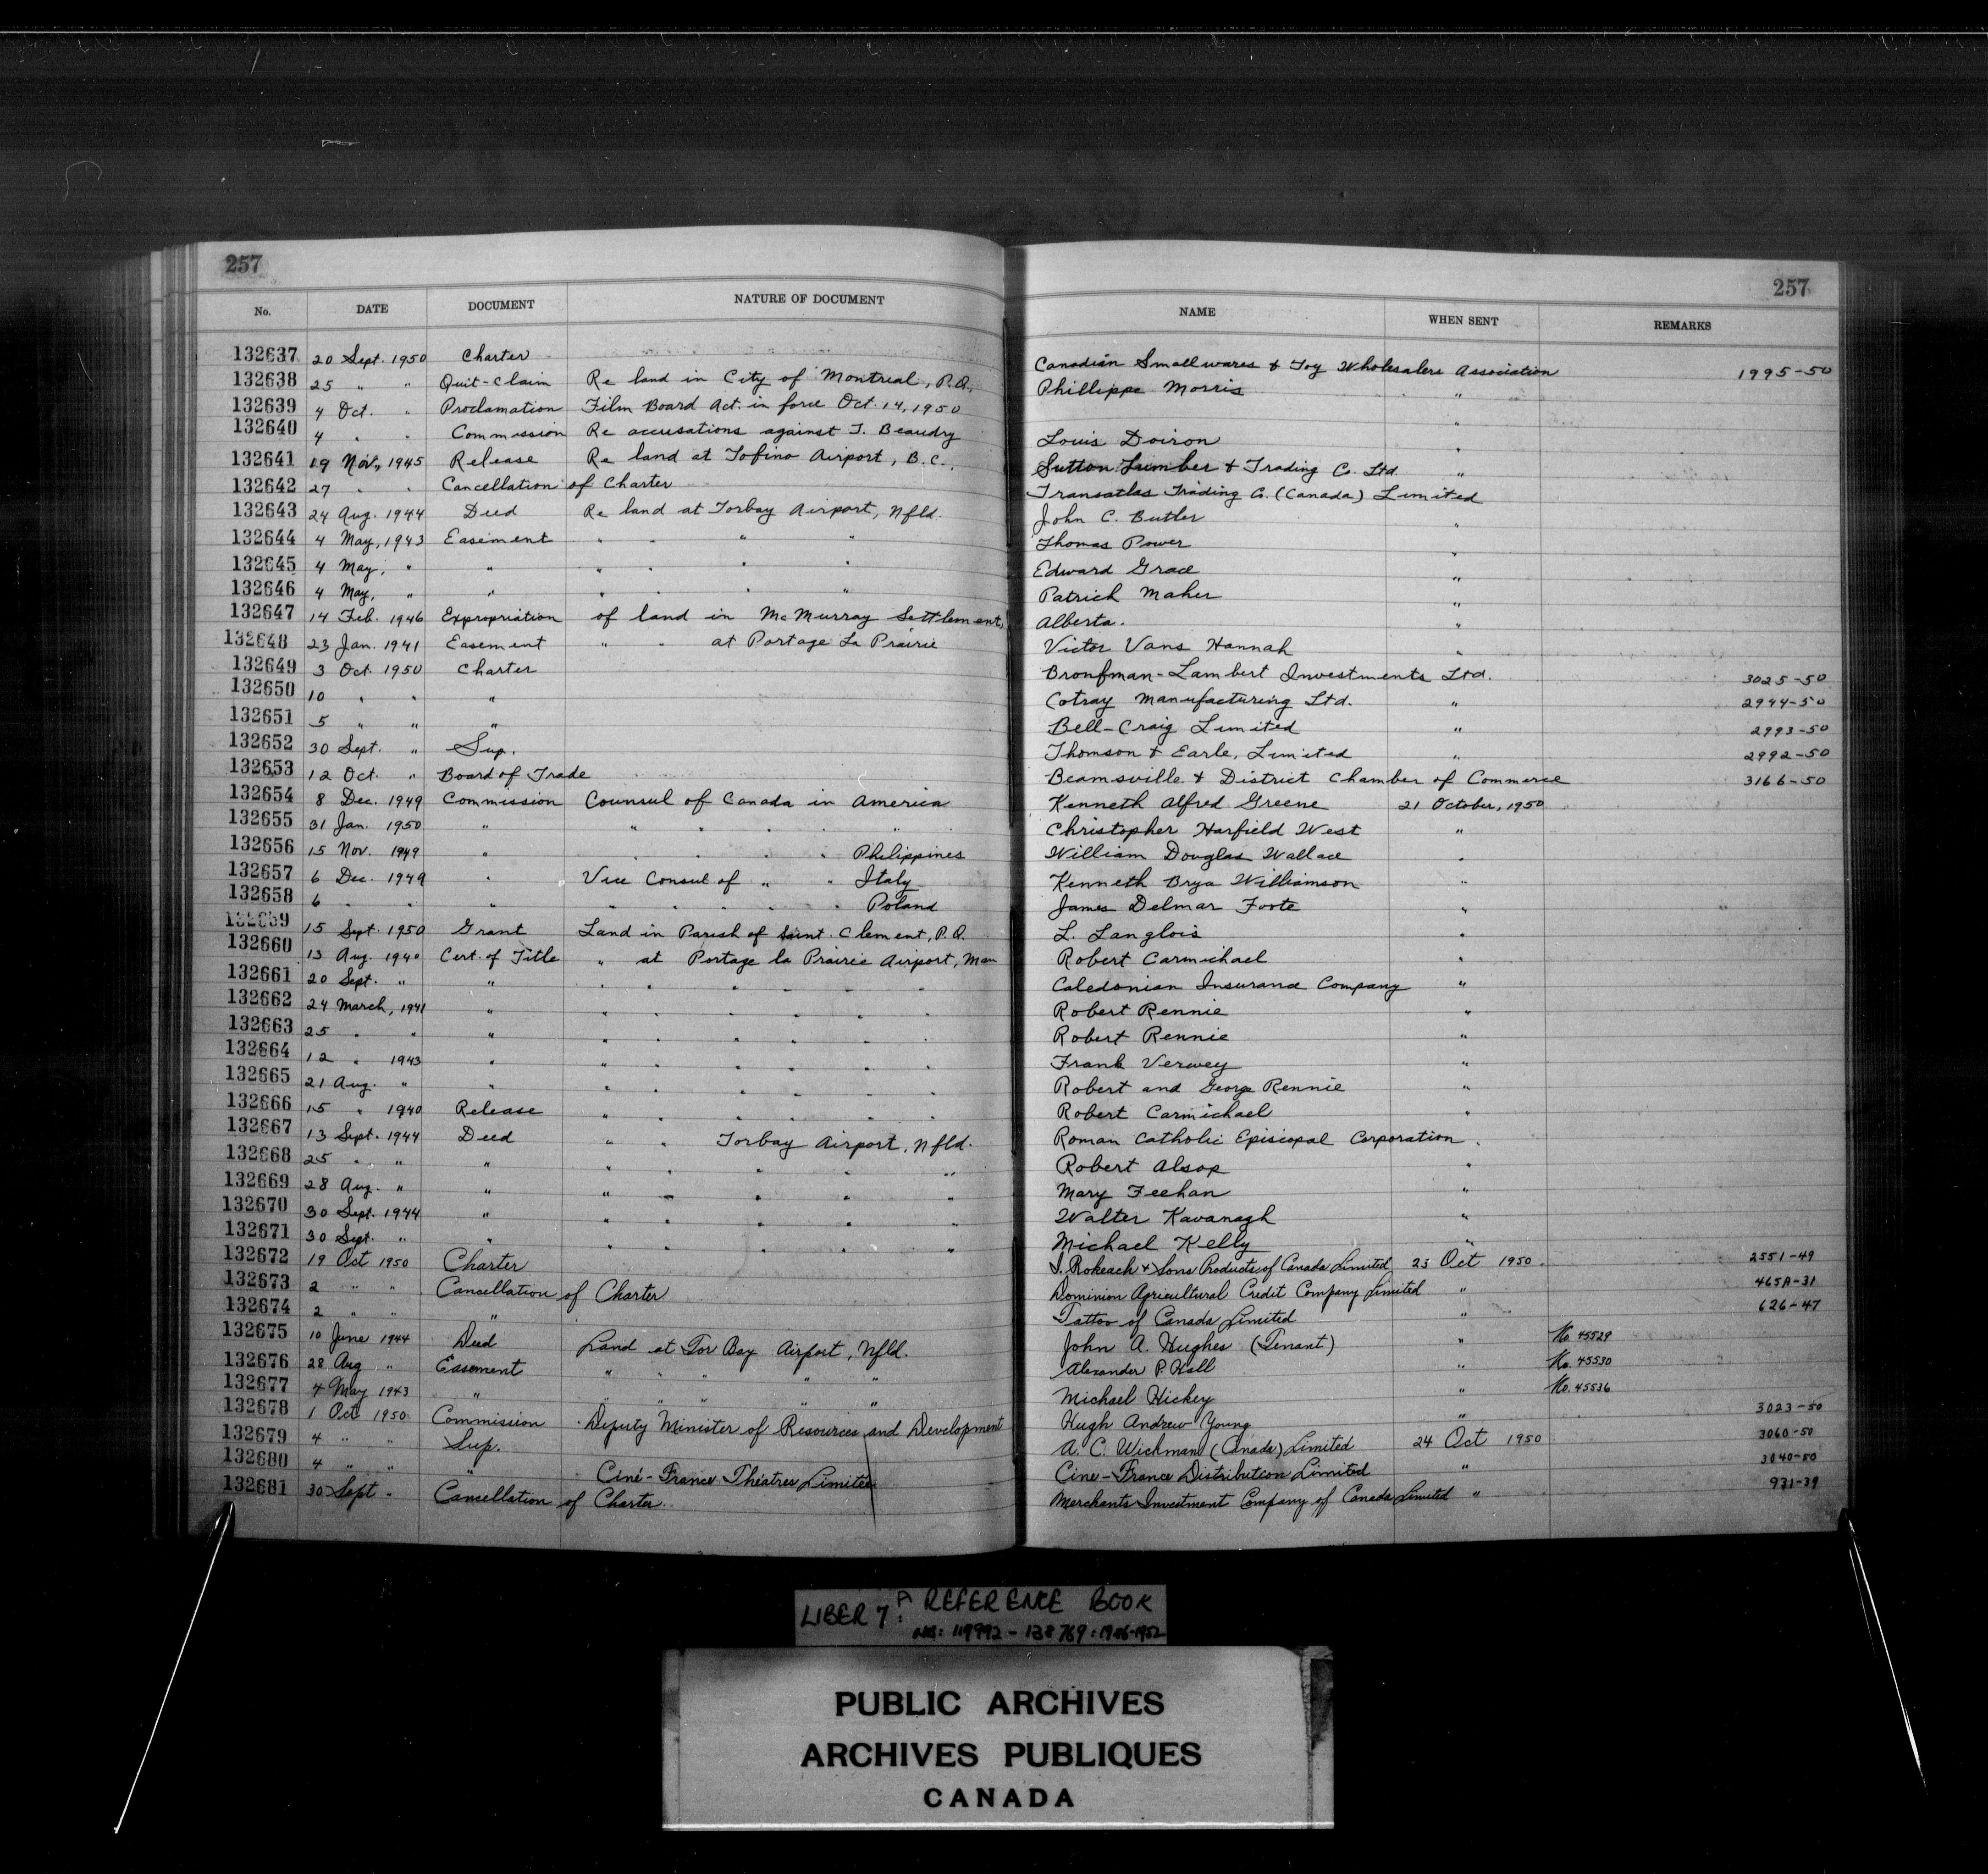 257
257
No. DATE DOCUMENT NATURE OF DOCUMENT NAME WHEN SENT REMARKS
132637 20 Sept. 1950 Charter Canadian Smallwares & Toy Wholesalers Association 1995-50
132638 25 " " Quit-Claim Re land in City of Montreal, P.Q. Phillippe Morris "
132639 4 Oct. " Proclamation Film Board Act. in force Oct. 14, 1950 "
132640 4 " " Commission Re accusations against T. Beaudry Louis Doiron "
132641 19 Nov., 1945 Release Re land at Tofino Airport, B.C. Sutton Lumber & Trading Co. Ltd. "
132642 27 " " Cancellation of Charter Transatlas Trading Co. (Canada) Limited
132643 24 Aug. 1944 Deed Re land at Torbay Airport, Nfld. John C. Butler "
132644 4 May, 1943 Easement " " " " Thomas Power "
132645 4 May, " " " " " " Edward Grace "
132646 4 May, " " " " " " Patrick Maher "
132647 14 Feb. 1946 Expropriation of land in McMurray Settlement, Alberta. "
132648 23 Jan. 1941 Easement " " at Portage La Prairie Victor Vans Hannah "
132649 3 Oct. 1950 Charter Bronfman-Lambert Investments Ltd. 3025-50
132650 10 " " " Cotray Manufacturing Ltd. " 2944-50
132651 5 " " " Bell-Craig Limited " 2993-50
132652 30 Sept. " Sup. Thomson & Earle, Limited " 2992-50
132653 12 Oct. " Board of Trade Beamsville & District Chamber of Commerce 3166-50
132654 8 Dec. 1949 Commission Counsul of Canada in America Kenneth Alfred Greene 21 October, 1950
132655 31 Jan. 1950 " " " " " " Christopher Harfield West "
132656 15 Nov. 1949 " " " " " Philippines William Douglas Wallace "
132657 6 Dec. 1949 " Vice Consul of " " Italy Kenneth Brya Williamson "
132658 6 " " " " " " " " Poland James Delmar Foote "
132659 15 Sept. 1950 Grant Land in Parish of Saint Clement, P.Q. L. Langlois "
132660 13 Aug. 1940 Cert. of Title " at Portage la Prairie Airport, Man Robert Carmichael "
132661 20 Sept. " " " " " " " " Caledonian Insurance Company "
132662 24 March, 1941 " " " " " " " Robert Rennie "
132663 25 " " " " " " " " " Robert Rennie "
132664 12 " 1943 " " " " " " " Frank Verwey "
132665 21 Aug. " " " " " " " " Robert and George Rennie "
132666 15 " 1940 Release " " " " " " Robert Carmichael "
132667 13 Sept. 1944 Deed " " Torbay Airport, Nfld. Roman Catholic Episcopal Corporation "
132668 25 " " " " " " " " Robert Alsop "
132669 28 Aug. " " " " " " " Mary Feehan "
132670 30 Sept. 1944 " " " " " " Walter Kavanagh "
132671 30 Sept. " " " " " " " Michael Kelly "
132672 19 Oct 1950 Charter I. Rokeach & Sons Products of Canada Limited 23 Oct 1950 2551-49
132673 2 " " Cancellation of Charter Dominion Agricultural Credit Company Limited " 465A-31
132674 2 " " " Tattoo of Canada Limited " 626-47
132675 10 June 1944 Deed Land at Tor Bay Airport, Nfld. John A. Hughes (Tenant) " No. 45529
132676 28 Aug " Easement " " " " " Alexander P. Hall " No. 45530
132677 4 May 1943 " " " " " " Michael Hickey " No. 45536
132678 1 Oct 1950 Commission Deputy Minister of Resources and Development Hugh Andrew Young " 3023-50
132679 4 " " Sup. A. C. Wickman (Canada) Limited 24 Oct 1950 3060-50
132680 4 " " " Ciné-France Théatres Limited Cine-France Distribution Limited " 3040-50
132681 30 Sept " Cancellation of Charter Merchants Investment Company of Canada Limited " 931-39
LIBER 7: A REFERENCE BOOK
NOS: 119992 - 138769: 1946-1952
PUBLIC ARCHIVES
ARCHIVES PUBLIQUES
CANADA